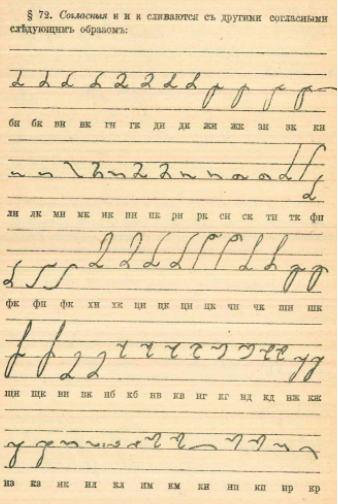 § 72. Согласныя н и к сливаются съ другими согласными
слѣдующимъ образомъ:
бн бк вн вк гн гк дн дк жн жк зн зк кн
лн лк мн мк нк пн пк рн рк сн ск тн тк фн
фк фн фк хн хк цн цк цн цк чн чк шн шк
щн щк нб кб нв кв нг кг нд кд нж кж
нз кз нк нл кл нм км кн нп кп нр кр